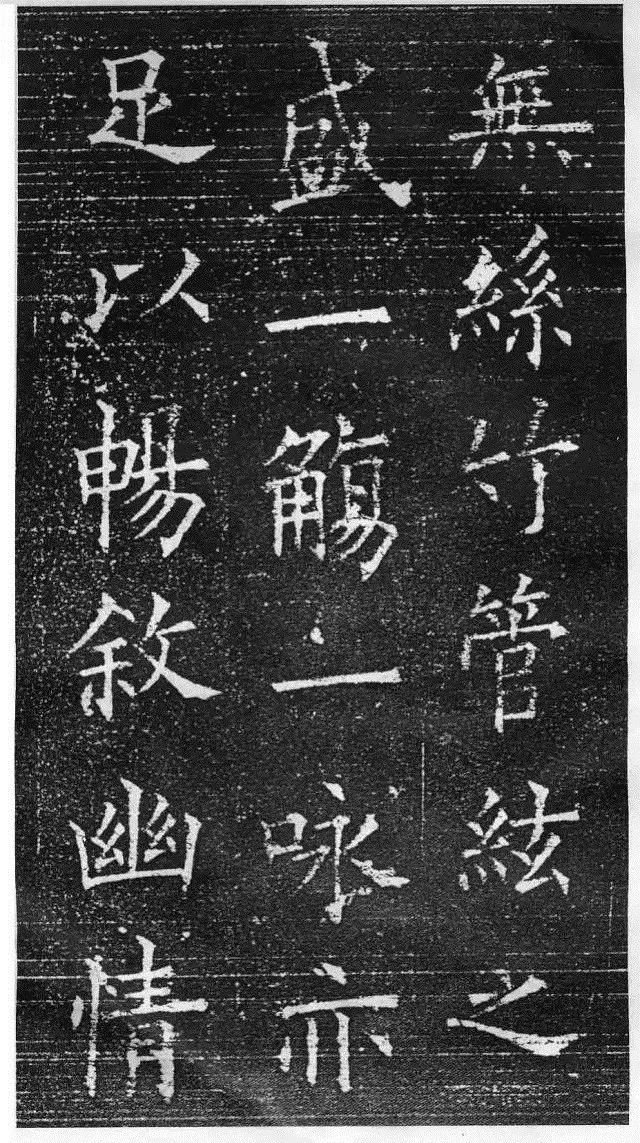 無絲竹管絃之
盛一觴一咏亦
足以暢敘幽情